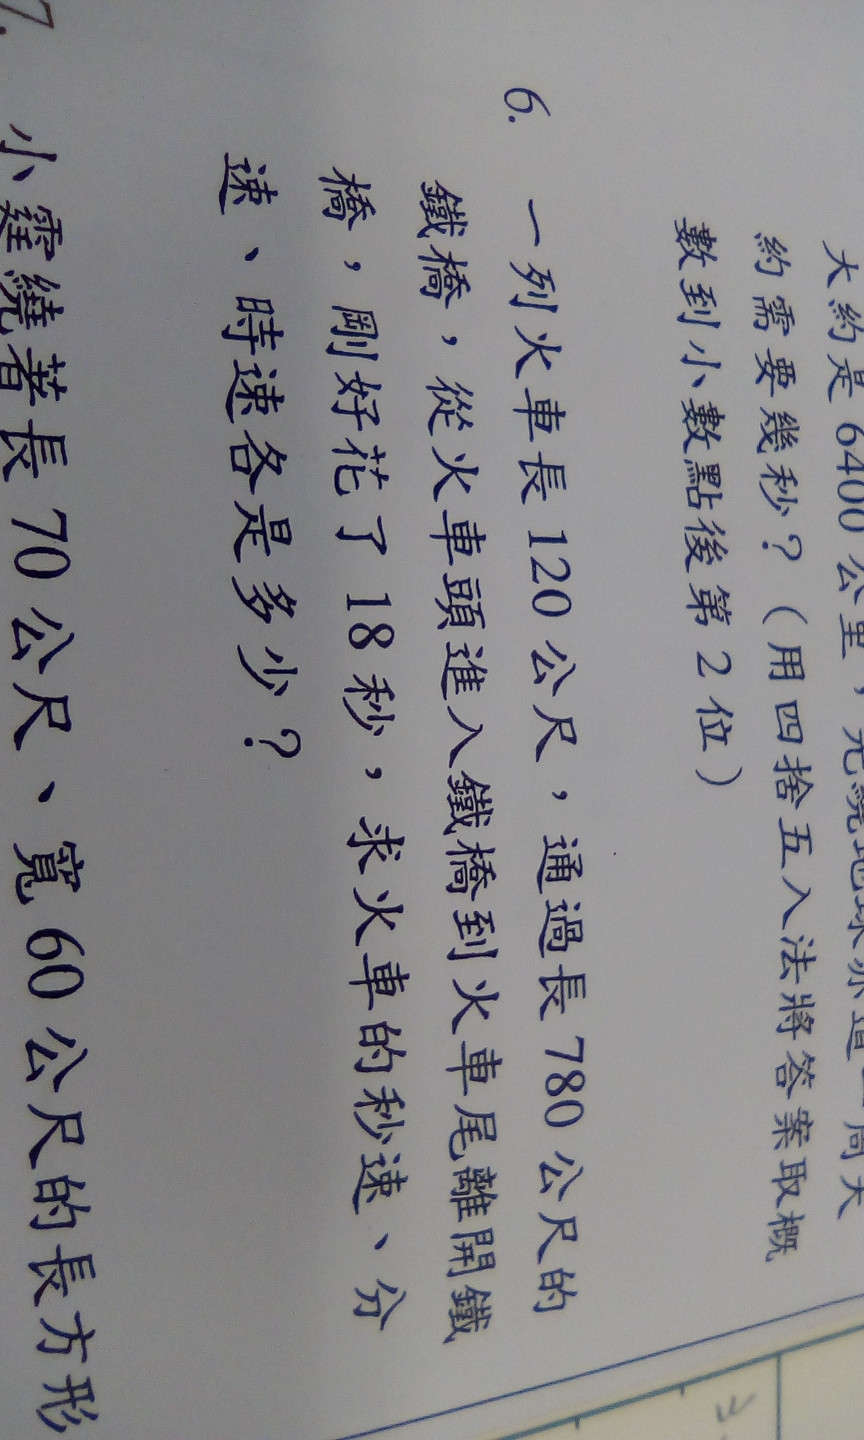 大約是 6400 公里，光繞地球赤道一周大
約需要幾秒？（用四捨五入法將答案取概
數到小數點後第 2 位）
6. 一列火車長 120 公尺，通過長 780 公尺的
鐵橋，從火車頭進入鐵橋到火車尾離開鐵
橋，剛好花了 18 秒，求火車的秒速、分
速、時速各是多少？
7. 小霆繞著長 70 公尺、寬 60 公尺的長方形